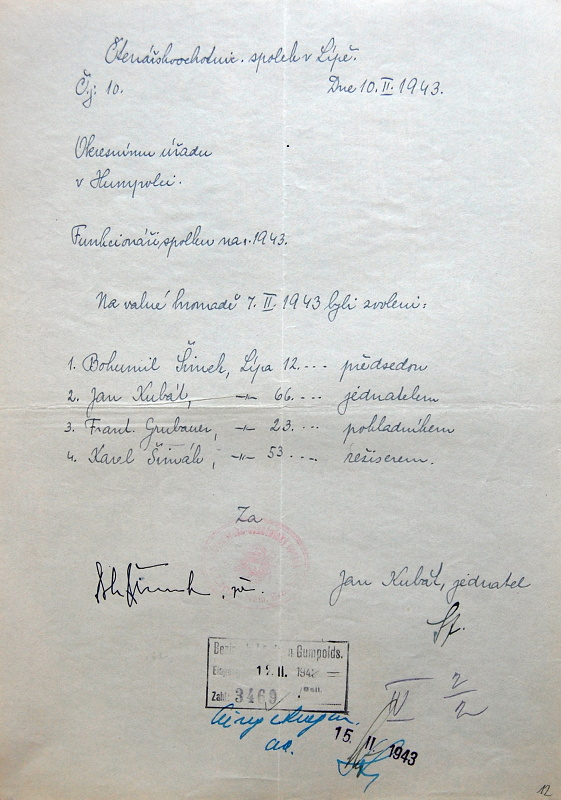 Čtenářskoochotnic. spolek v Lípě.
Č.j: 10. Dne 10. II. 1943.
Okresnímu úřadu
v Humpolci.
Funkcionáři spolku na r. 1943.
Na valné hromadě 7. II. 1943 byli zvoleni:
1. Bohumil Šimek, Lípa 12. - - - předsedou
2. Jan Kubát, -"- 66. - - - jednatelem
3. Frant. Grubauer, -"- 23. - - - pokladníkem
4. Karel Šimák, -"- 53 - - - - režiserem.
Za
Jan Kubát, jednatel
Gumpolds.
II. 194
Zahl: 3469
IV 2/2
15. II. 1943
12